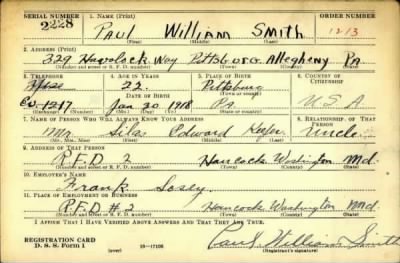 SERIAL NUMBER 1. NAME (Print) ORDER NUMBER
2228 PAUL William Smith 1213
(First) (Middle) (Last)
2. ADDRESS (Print)
329 Havelock Way Pittsburg Allegheny Pa.
(Number and street or R. F. D. number) (Town) (County) (State)
3. TELEPHONE 4. AGE IN YEARS 5. PLACE OF BIRTH 6. COUNTRY OF CITIZENSHIP
22 Pittsburg
DATE OF BIRTH (Town or county)
1217 Jan 20 1918 Pa. U.S.A
(Exchange) (Number) (Mo.) (Day) (Yr.) (State or country)
7. NAME OF PERSON WHO WILL ALWAYS KNOW YOUR ADDRESS 8. RELATIONSHIP OF THAT PERSON
Mr. Silas Edward Uncle
(Mr., Mrs., Miss) (First) (Middle) (Last)
9. ADDRESS OF THAT PERSON
R.F.D 2 Hancock Washington Md.
(Number and street or R. F. D. number) (Town) (County) (State)
10. EMPLOYER'S NAME
Frank
11. PLACE OF EMPLOYMENT OR BUSINESS
R.F.D #2 Hancock Washington Md.
(Number and street or R. F. D. number) (Town) (County) (State)
I AFFIRM THAT I HAVE VERIFIED ABOVE ANSWERS AND THAT THEY ARE TRUE.
REGISTRATION CARD
D. S. S. Form 1 (over) 16—17105 Paul William Smith